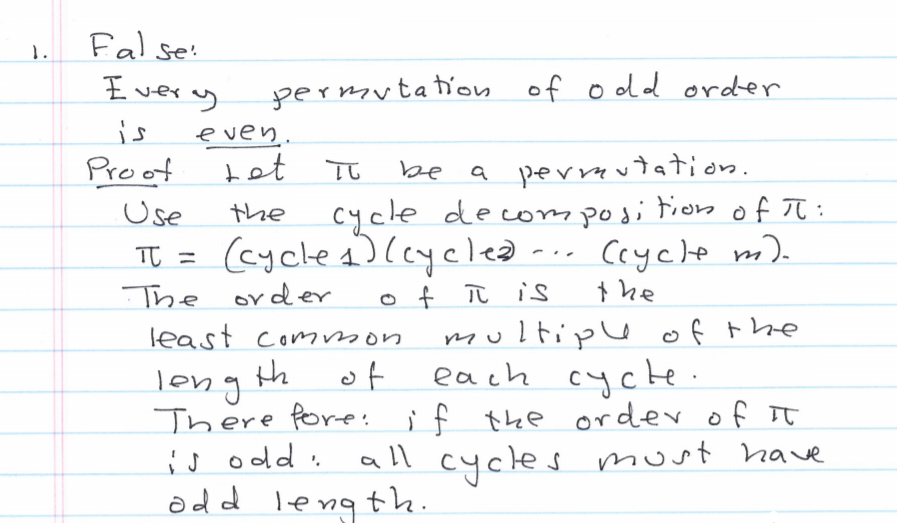 1. False:
Every permutation of odd order
is even.
Proof Let π be a permutation.
Use the cycle decomposition of π:
π = (cycle 1)(cycle2 --.. (cycle m).
The order of π is the
least common multiple of the
length of each cycle.
Therefore: if the order of π
is odd: all cycles must have
odd length.